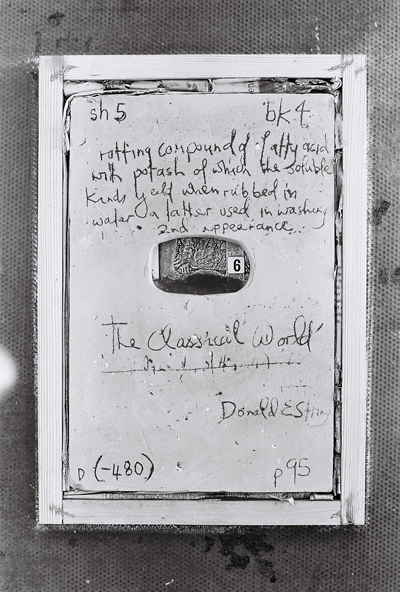 sh 5 bk 4
rotting compound of fatty acid
with potash of which the soluble
kinds yeilf when rubbed in
water a latter used in washing
2nd appearance...
6
'The Classical World'
Donald E
D (-480) p 95